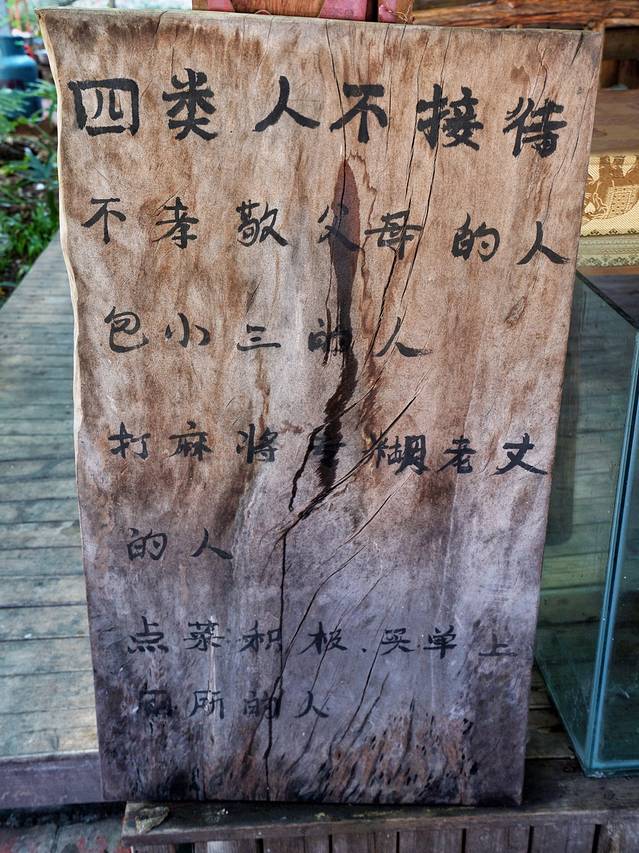 四类人不接待
不孝敬父母的人
包小三的人
打麻将 糊老丈
的人
点菜积极、买单上
厕所的人